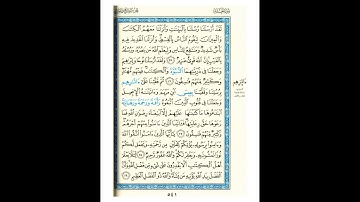 لَقَدْ أَرْسَلْنَا رُسُلَنَا بِالْبَيِّنَاتِ وَأَنزَلْنَا مَعَهُمُ الْكِتَابَ
وَالْمِيزَانَ لِيَقُومَ النَّاسُ بِالْقِسْطِ وَأَنزَلْنَا الْحَدِيدَ فِيهِ
بَأْسٌ شَدِيدٌ وَمَنَافِعُ لِلنَّاسِ وَلِيَعْلَمَ اللَّهُ مَن يَنصُرُهُ وَرُسُلَهُ
بِالْغَيْبِ إِنَّ اللَّهَ قَوِيٌّ عَزِيزٌ ٢٥ وَلَقَدْ أَرْسَلْنَا نُوحًا وَإِبْرَاهِيمَ
وَجَعَلْنَا فِي ذُرِّيَّتِهِمَا النُّبُوَّةَ وَالْكِتَابَ فَمِنْهُم مُّهْتَدٍ
وَكَثِيرٌ مِّنْهُمْ فَاسِقُونَ ٢٦ ثُمَّ قَفَّيْنَا عَلَى آثَارِهِم
بِرُسُلِنَا وَقَفَّيْنَا بِعِيسَى ابْنِ مَرْيَمَ وَآتَيْنَاهُ الْإِنجِيلَ
وَجَعَلْنَا فِي قُلُوبِ الَّذِينَ اتَّبَعُوهُ رَأْفَةً وَرَحْمَةً وَرَهْبَانِيَّةً
ابْتَدَعُوهَا مَا كَتَبْنَاهَا عَلَيْهِمْ إِلَّا ابْتِغَاءَ رِضْوَانِ اللَّهِ فَمَا
رَعَوْهَا حَقَّ رِعَايَتِهَا فَآتَيْنَا الَّذِينَ آمَنُوا مِنْهُمْ أَجْرَهُمْ
وَكَثِيرٌ مِّنْهُمْ فَاسِقُونَ ٢٧ يَا أَيُّهَا الَّذِينَ آمَنُوا اتَّقُوا اللَّهَ
وَآمِنُوا بِرَسُولِهِ يُؤْتِكُمْ كِفْلَيْنِ مِن رَّحْمَتِهِ وَيَجْعَل لَّكُمْ
نُورًا تَمْشُونَ بِهِ وَيَغْفِرْ لَكُمْ وَاللَّهُ غَفُورٌ رَّحِيمٌ ٢٨ لِّئَلَّا يَعْلَمَ أَهْلُ
الْكِتَابِ أَلَّا يَقْدِرُونَ عَلَى شَيْءٍ مِّن فَضْلِ اللَّهِ وَأَنَّ
الْفَضْلَ بِيَدِ اللَّهِ يُؤْتِيهِ مَن يَشَاءُ وَاللَّهُ ذُو الْفَضْلِ الْعَظِيمِ ٢٩
٥٤١